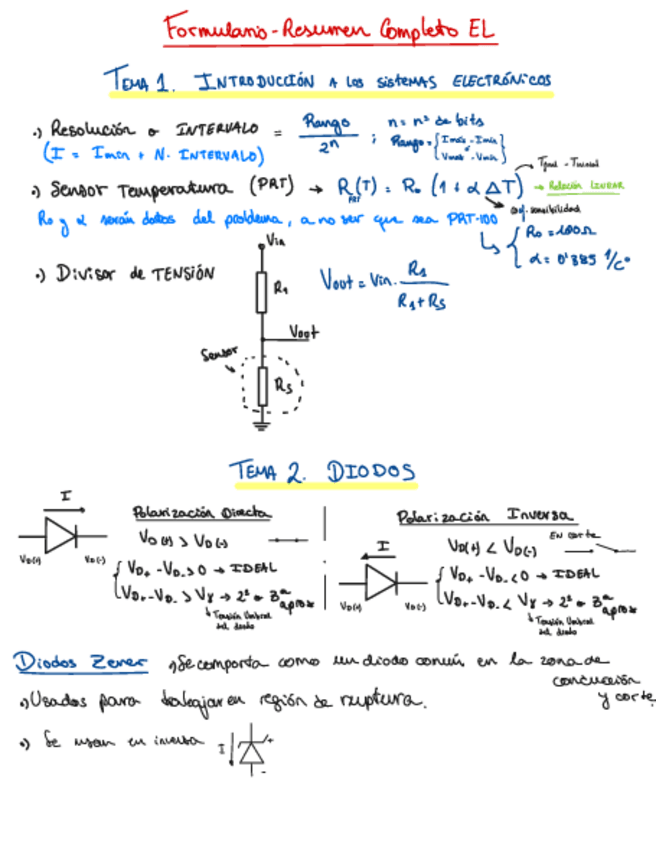 Formulario-Resumen Completo EL
TEMA 1. INTRODUCCIÓN A los sistemas ELECTRÓNICOS
·) Resolución o INTERVALO = Rango / 2ⁿ ; n = nº de bits
Rango = { Imáx - Imín
o
Vmáx - Vmín }
(I = Imin + N · INTERVALO)
·) Sensor Temperatura (PRT) → R(T) = R₀ (1 + α ΔT) → Relación LINEAR
PRT
Tfinal - Tinicial
coef. sensibilidad
R₀ y α serán datos del problema, a no ser que sea PRT-100
{ R₀ = 100Ω
α = 0'385 1/Cº
·) Divisor de TENSIÓN
Vin
R1
Vout
Sensor
RS
Vout = Vin · R1 / R1 + RS
TEMA 2. DIODOS
I
VD(+)
VD(-)
Polarización Directa
VD(+) > VD(-)
{ VD+ - VD- > 0 → IDEAL
VD+ - VD- > Vγ → 2ª o 3ª aprox
↳ Tensión Umbral
del diodo
Polarización Inversa
En corte
I
VD(+)
VD(-)
VD(+) < VD(-)
{ VD+ - VD- < 0 → IDEAL
VD+ - VD- < Vγ → 2ª o 3ª aprox
↳ Tensión Umbral
del diodo
Diodos Zener ·) Se comporta como un diodo común en la zona de
conducción
y corte.
·) Usados para trabajar en región de ruptura.
·) Se usan en inversa
I
+
-